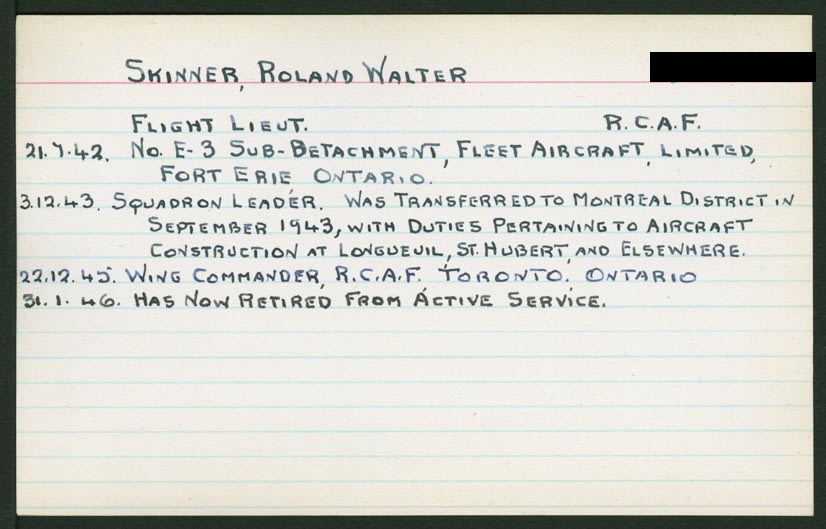 SKINNER, ROLAND WALTER
FLIGHT LIEUT. R.C.A.F.
21.7.42. No. E-3 SUB-DETACHMENT, FLEET AIRCRAFT, LIMITED,
FORT ERIE, ONTARIO.
3.12.43. SQUADRON LEADER. WAS TRANSFERRED TO MONTREAL DISTRICT IN
SEPTEMBER 1943, WITH DUTIES PERTAINING TO AIRCRAFT
CONSTRUCTION AT LONGUEUIL, ST. HUBERT, AND ELSEWHERE.
22.12.45. WING COMMANDER, R.C.A.F. TORONTO, ONTARIO
31.1.46. HAS NOW RETIRED FROM ACTIVE SERVICE.